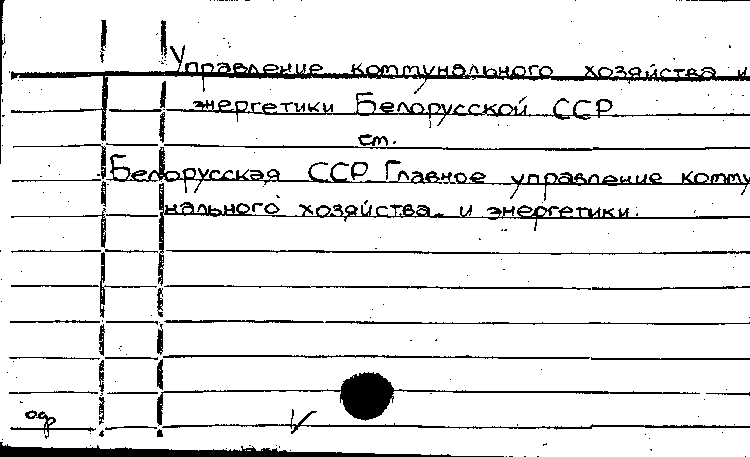 Управление коммунального хозяйства и
энергетики Белорусской ССР
см.
Белорусская ССР. Главное управление комму
нального хозяйства и энергетики.